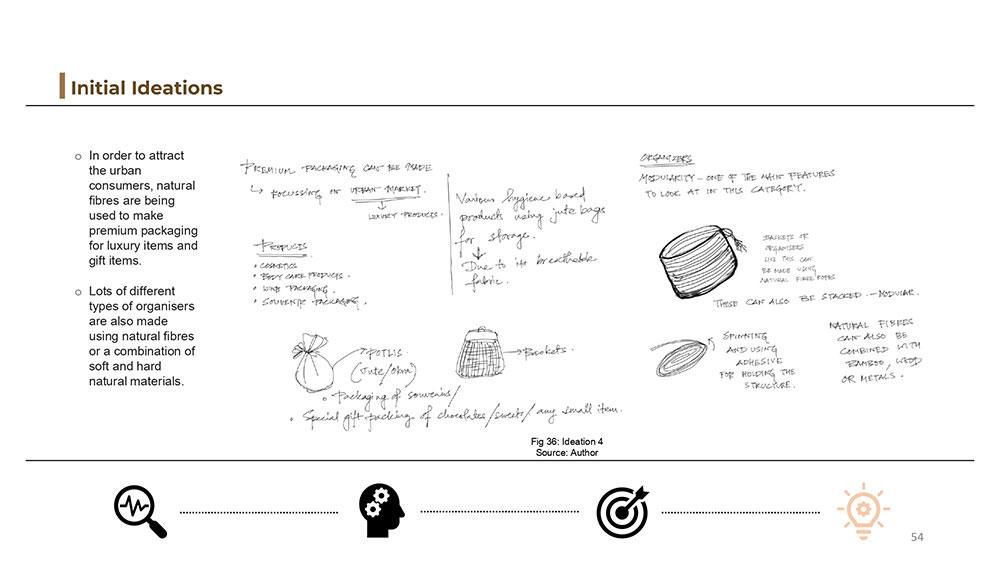 Initial Ideations
o In order to attract
the urban
consumers, natural
fibres are being
used to make
premium packaging
for luxury items and
gift items.
o Lots of different
types of organisers
are also made
using natural fibres
or a combination of
soft and hard
natural materials.
PREMIUM PACKAGING CAN BE MADE
↳ FOCUSSING ON URBAN MARKET.
↓
LUXURY PRODUCTS.
PRODUCTS
• COSMETICS
• BODY CARE PRODUCTS.
• WINE PACKAGING.
• SOUVENIR PACKAGING.
Various hygiene based
products using jute bags
for storage.
↓
Due to its breathable
fabric.
→ POTLIS
(Jute/
→ Baskets.
• Packaging of souvenirs/
• Special gift packing of chocolates/sweets/ any small item.
ORGANIZERS
MODULARITY – ONE OF THE MAIN FEATURES
TO LOOK AT IN THIS CATEGORY.
BASKETS OR
ORGANISERS
LIKE THIS CAN
BE MADE USING
NATURAL FIBRE ROPES
THESE CAN ALSO BE STACKED. – MODULAR.
SPINNING
AND USING
ADHESIVE
FOR HOLDING THE
STRUCTURE.
NATURAL FIBRES
CAN ALSO BE
COMBINED WITH
BAMBOO, WOOD
OR METALS.
Fig 36: Ideation 4
Source: Author
54